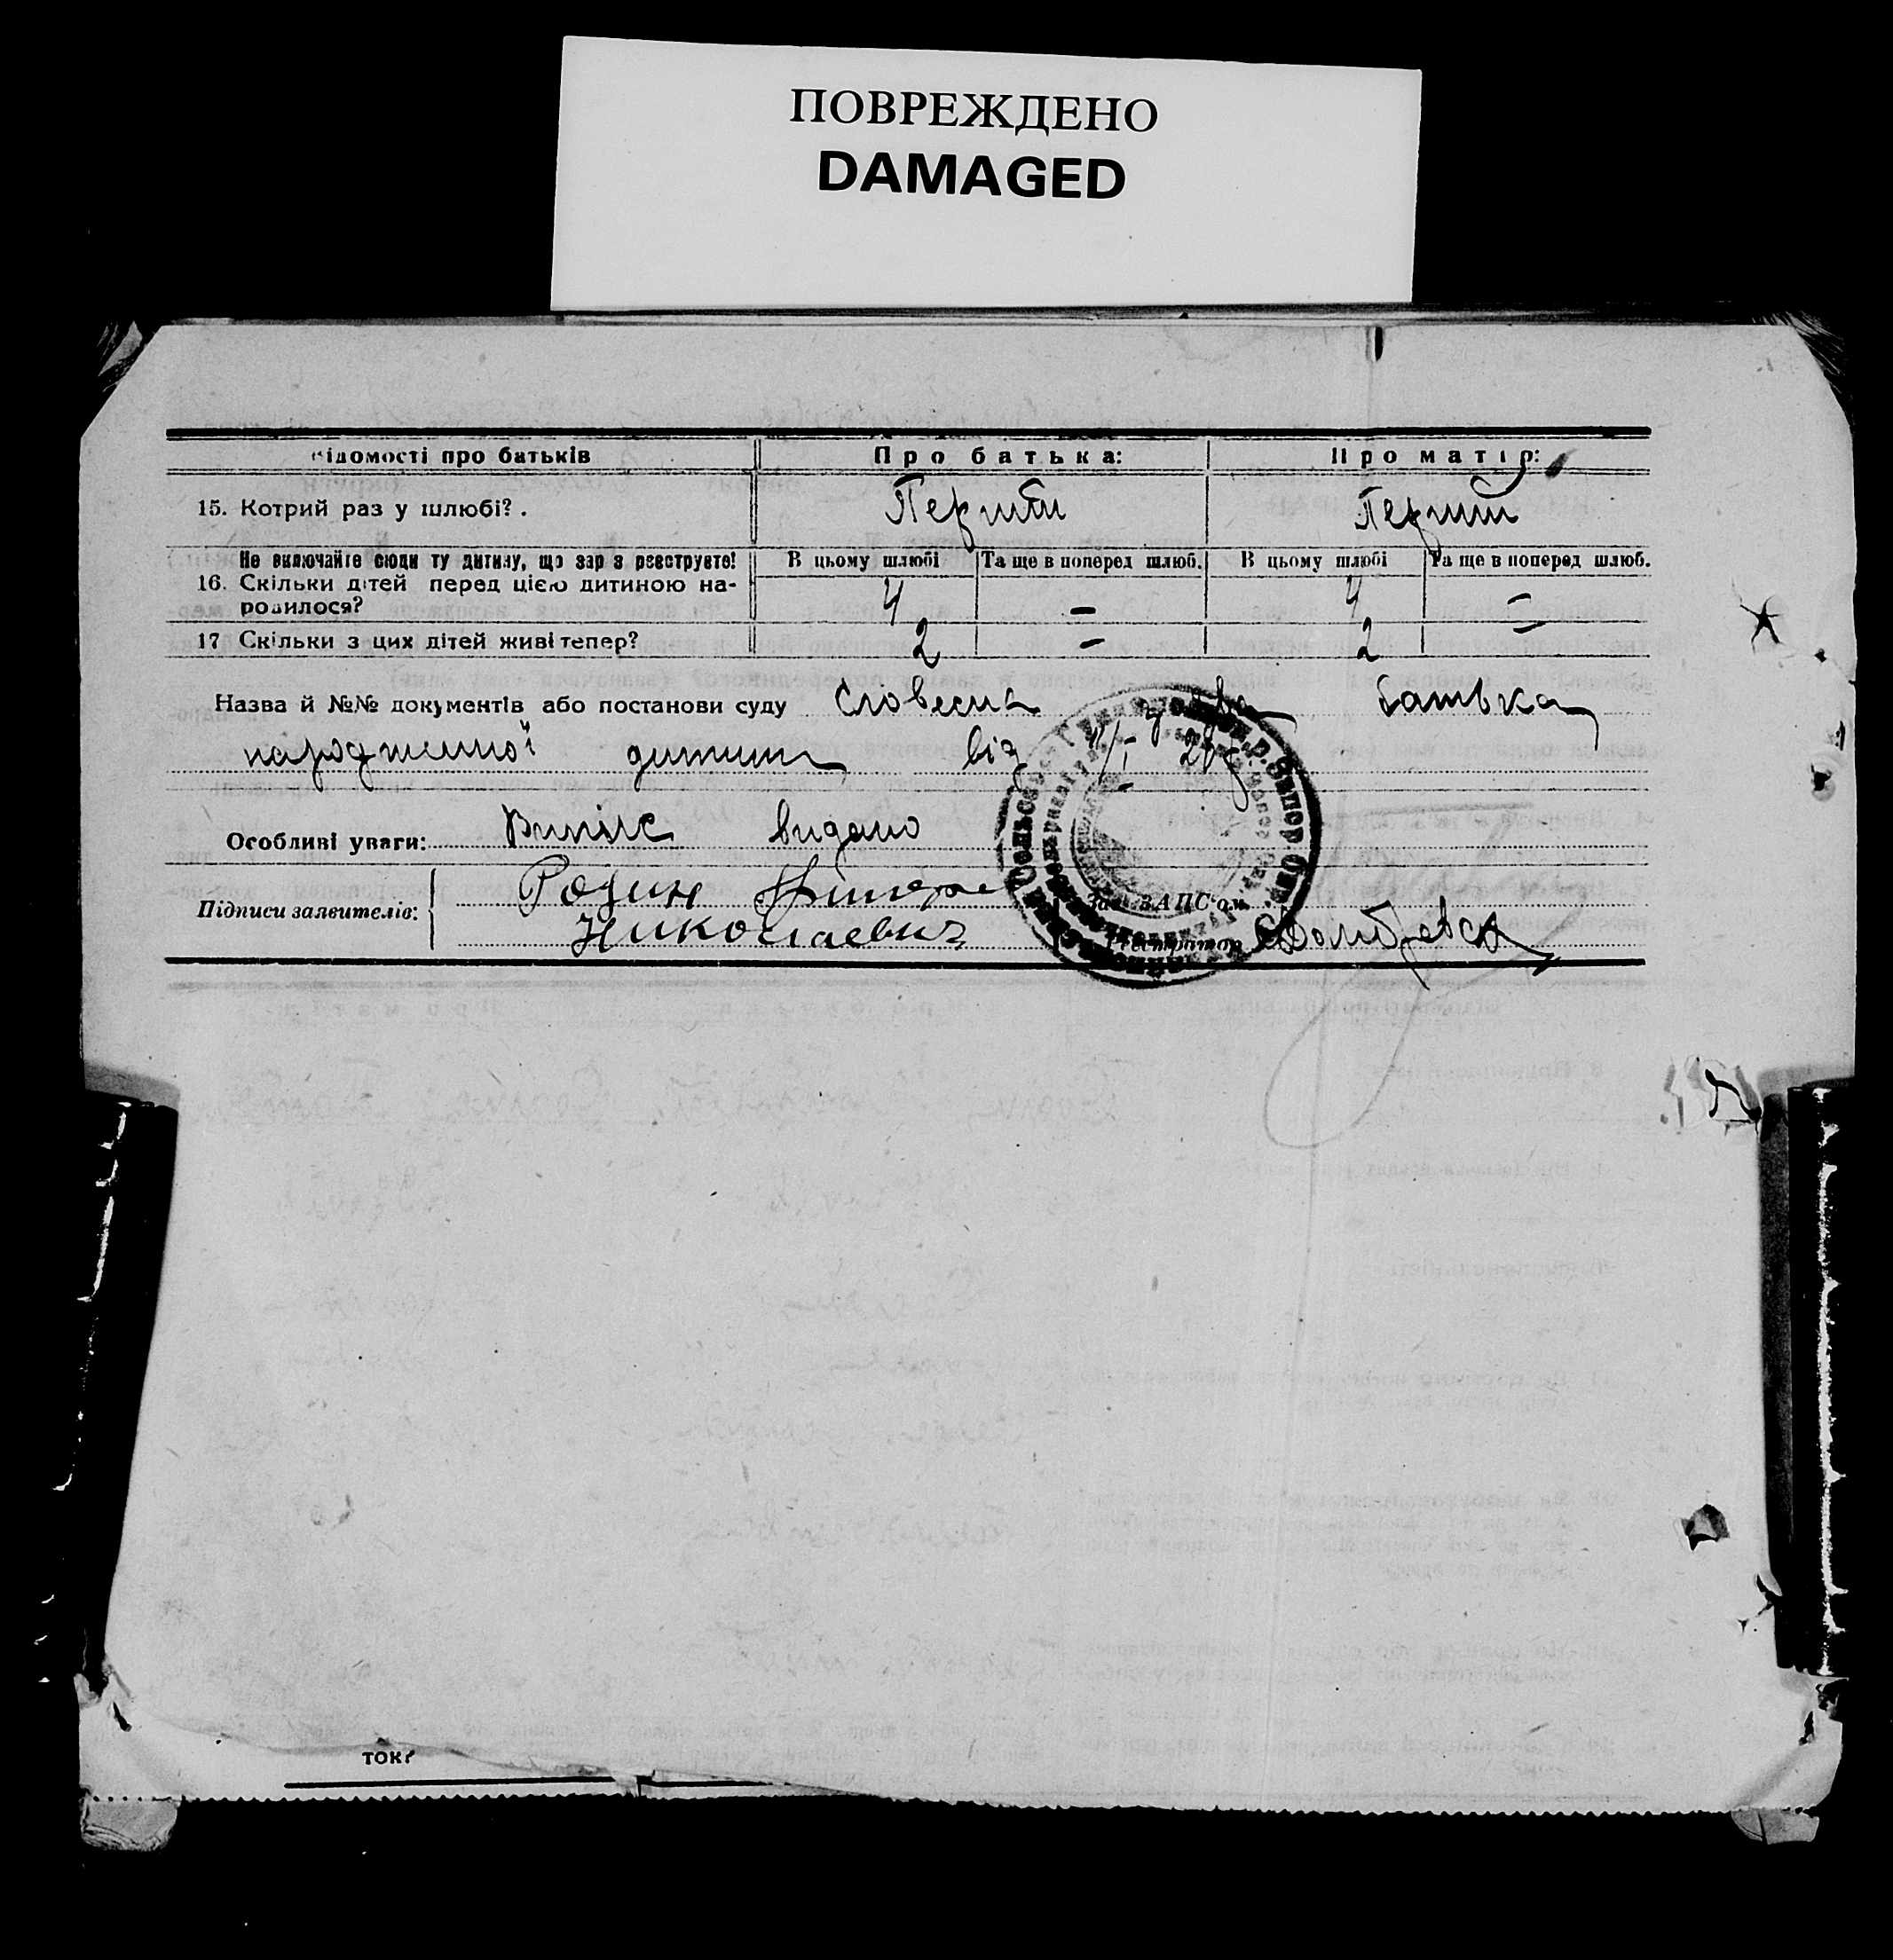 ПОВРЕЖДЕНО
DAMAGED
ідомості про батьків Про батька: Про матір:
15. Котрий раз у шлюбі? . Перший Перший
Не включайте сюди ту дитину, що зараз реєструєте! В цьому шлюбі Та ще в поперед шлюб. В цьому шлюбі Та ще в поперед шлюб.
16. Скільки дітей перед цією дитиною на-
родилося? 4 — 4 —
17 Скільки з цих дітей живі тепер? 2 — 2 —
Назва й №№ документів або постанови суду словесна батька
народженої дитини від
Особливі уваги: Випис видано
Підписи заявителів: Родин
Николаевич
Зав. ЗАПС'ом
Реєстратор
ток?